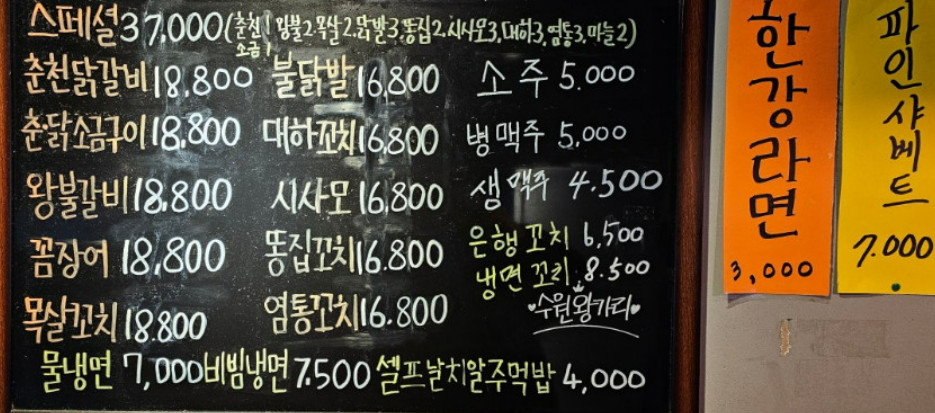 스페셜 37,000 (춘천1, 왕불2, 목살2, 닭발3, 똥집2, 시사모3, 대하3, 염통3, 마늘2)
소금1
춘천닭갈비 18,800 불닭발 16,800 소주 5.000
춘닭소금구이 18,800 대하꼬치 16,800 병맥주 5,000
왕불갈비 18.800 시사모 16,800 샘맥주 4.500
꼼장어 18,800 똥집꼬치 16.800 은행꼬치 6,500
냉면꼬리 8.500
목살꼬치 18.800 염통꼬치 16.800 수원왕가리
물냉면 7,000 비빔냉면 7.500 셀프날치알주먹밥 4,000
한강라면
3,000
파인샤베트
7.000